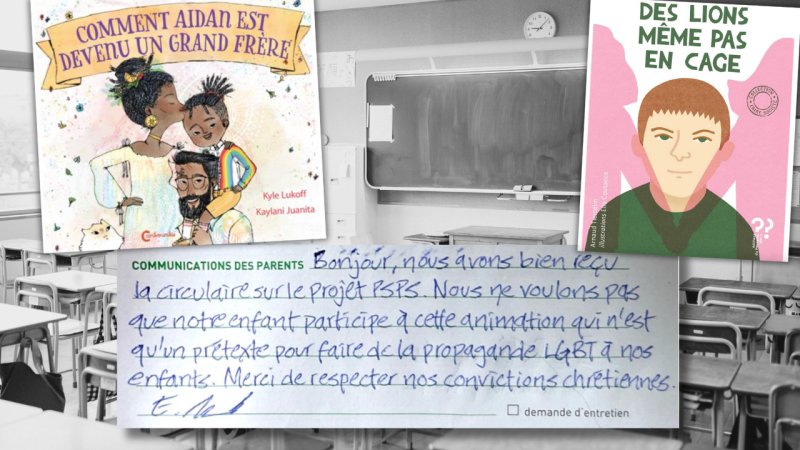 COMMENT AIDAN EST
DEVENU UN GRAND FRÈRE
Kyle Lukoff
Kaylani Juanita
DES LIONS
MÊME PAS
EN CAGE
COMMUNICATIONS DES PARENTS Bonjour, nous avons bien reçu
la circulaire sur le projet PSPS. Nous ne voulons pas
que notre enfant participe à cette animation qui n'est
qu'un prétexte pour faire de la propagande LGBT à nos
enfants. Merci de respecter nos convictions chrétiennes.
demande d'entretien